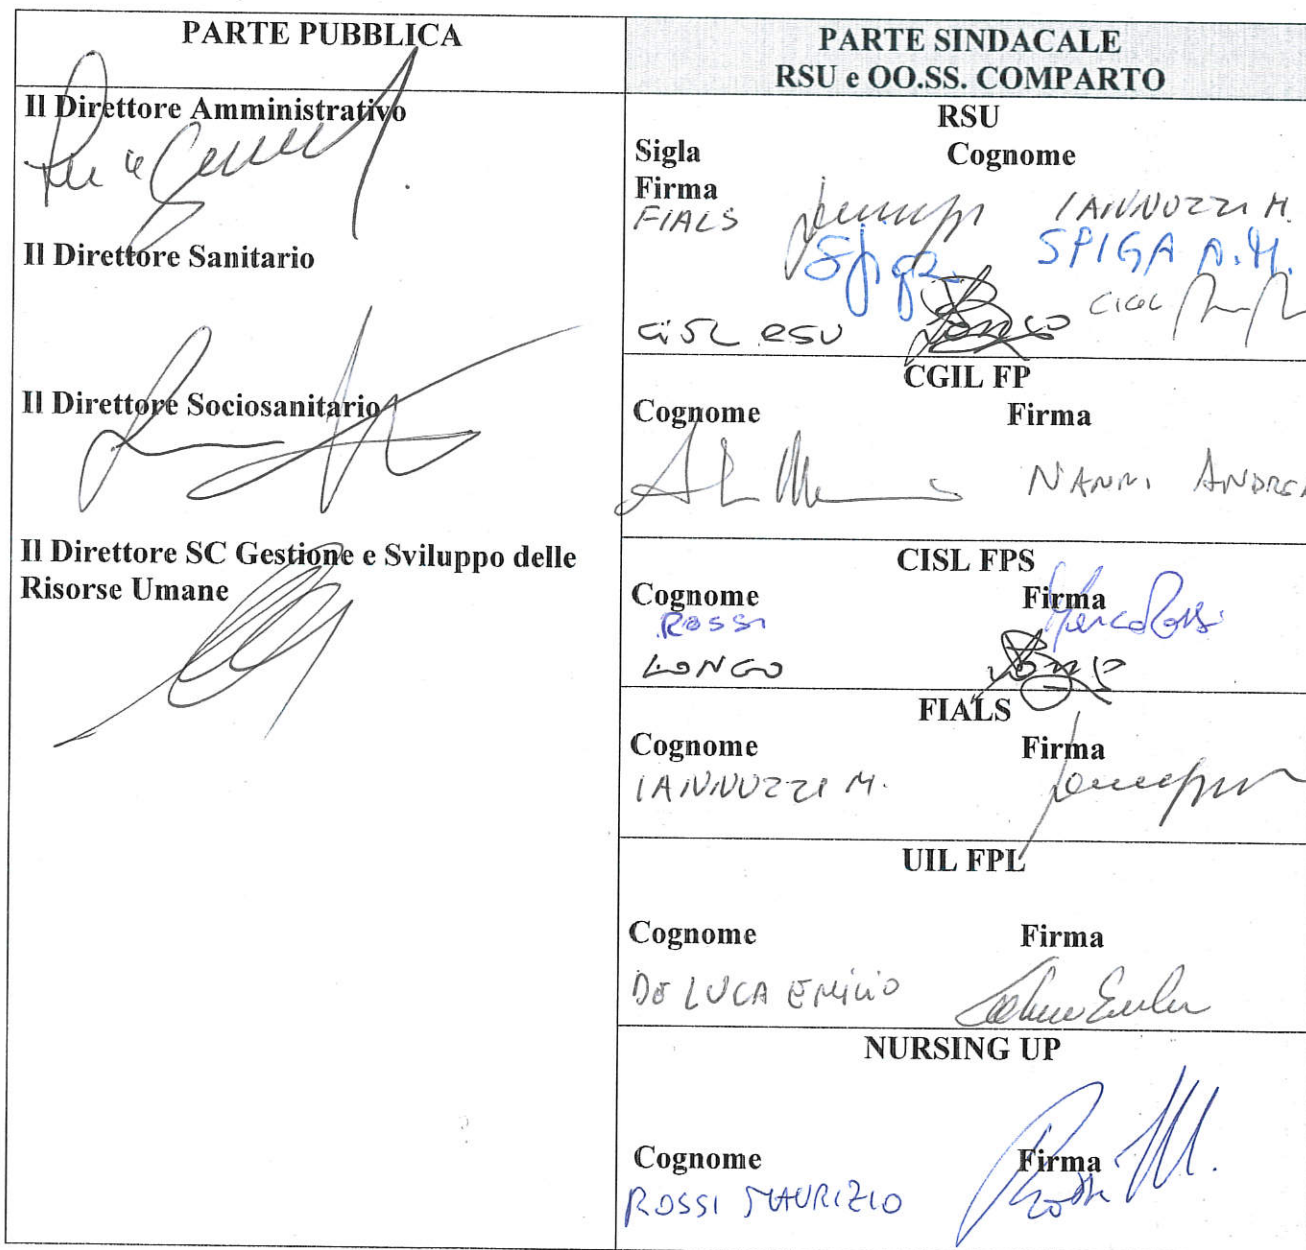 PARTE PUBBLICA
Il Direttore Amministrativo
Il Direttore Sanitario
Il Direttore Sociosanitario
Il Direttore SC Gestione e Sviluppo delle
Risorse Umane
PARTE SINDACALE
RSU e OO.SS. COMPARTO
RSU
Sigla Cognome
Firma
FIALS IANNUZZI M.
Spiga SPIGA A.M.
CISL RSU Longo
CGIL FP
Cognome Firma
NANNI ANDREA
CISL FPS
Cognome Firma
ROSSI Marco Rossi
LONGO Longo
FIALS
Cognome Firma
IANNUZZI M.
UIL FPL
Cognome Firma
DE LUCA EMILIO
NURSING UP
Cognome Firma
ROSSI MAURIZIO